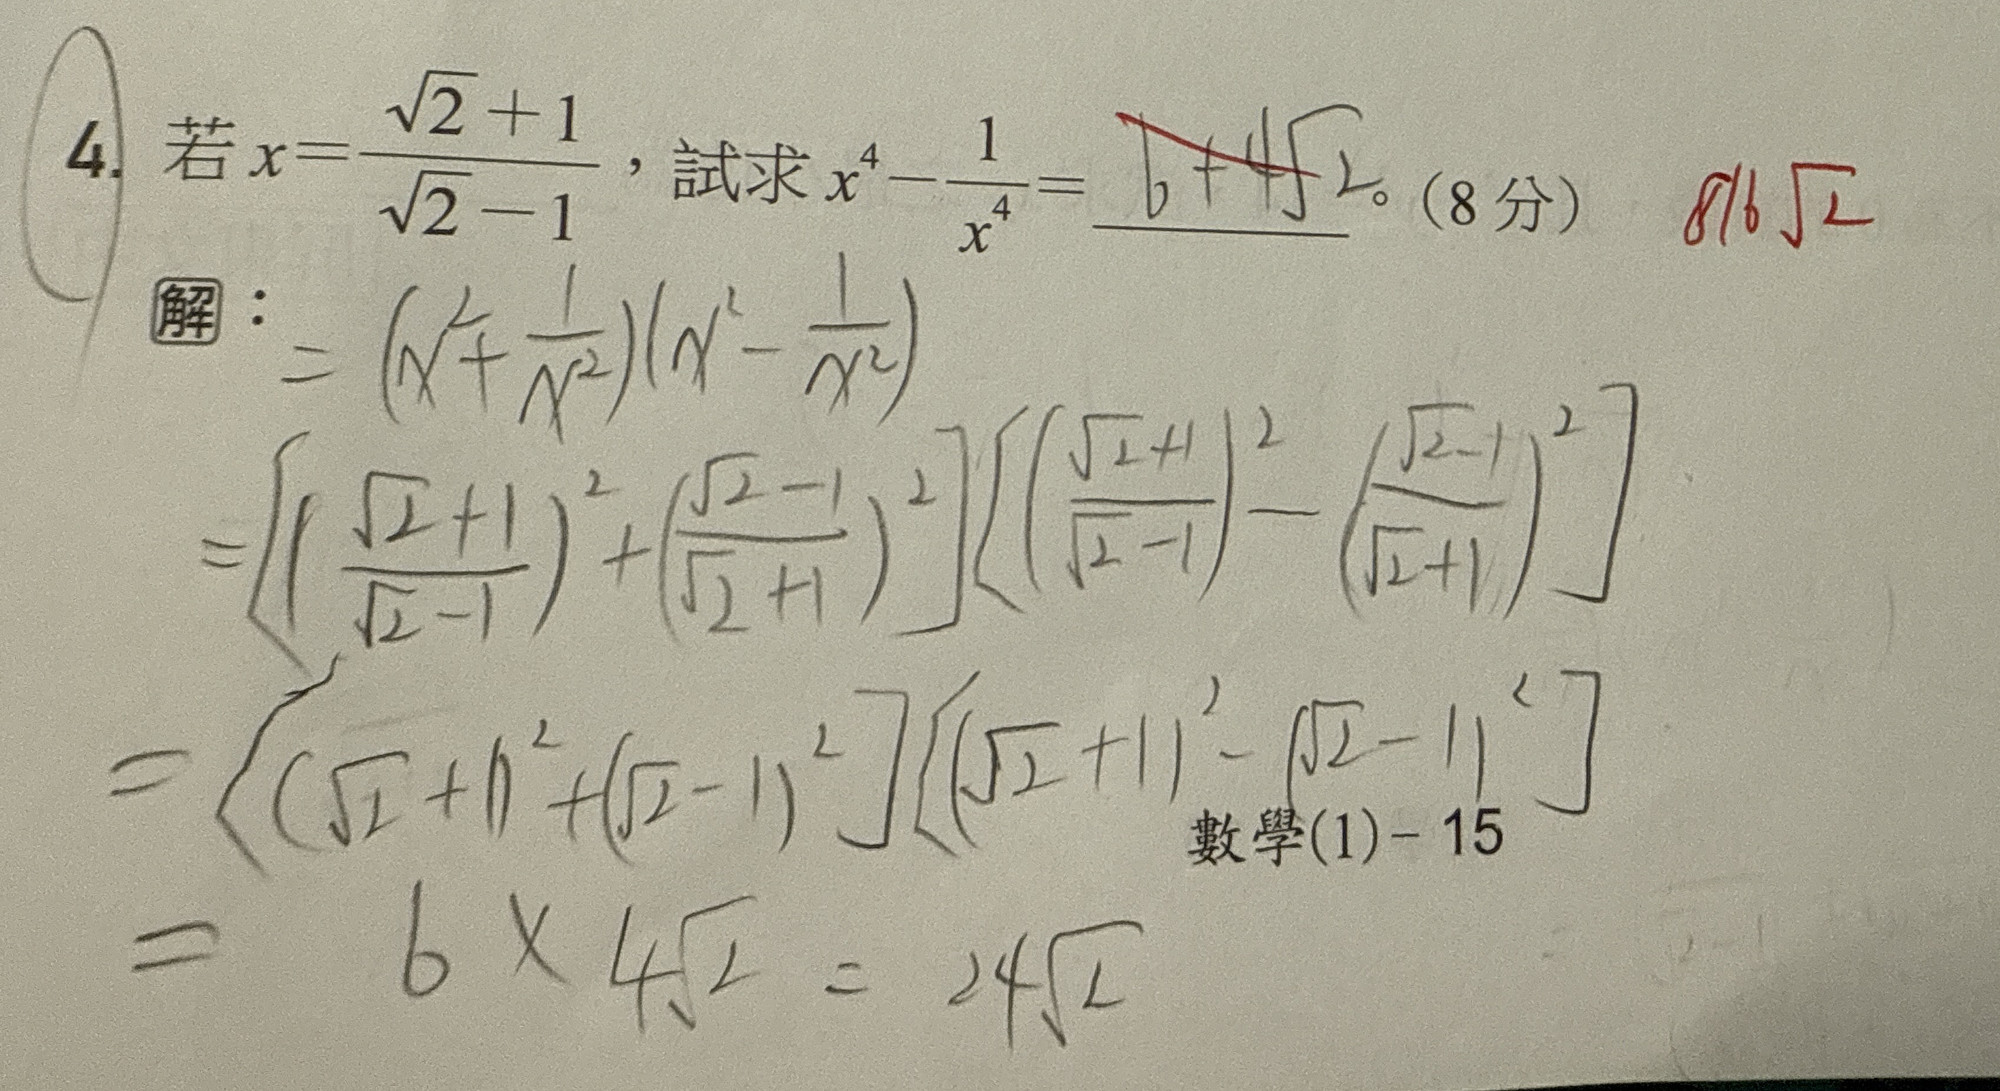 4. 若 x = (√2+1)/(√2−1)，試求 x⁴ − 1/x⁴ = 6+4√2。(8分) 816√2
解： = (x²+1/x²)(x²−1/x²)
= [((√2+1)/(√2−1))²+((√2−1)/(√2+1))²][((√2+1)/(√2−1))²−((√2−1)/(√2+1))²]
= [(√2+1)²+(√2−1)²][(√2+1)²−(√2−1)²]
數學(1)－15
= 6×4√2 = 24√2